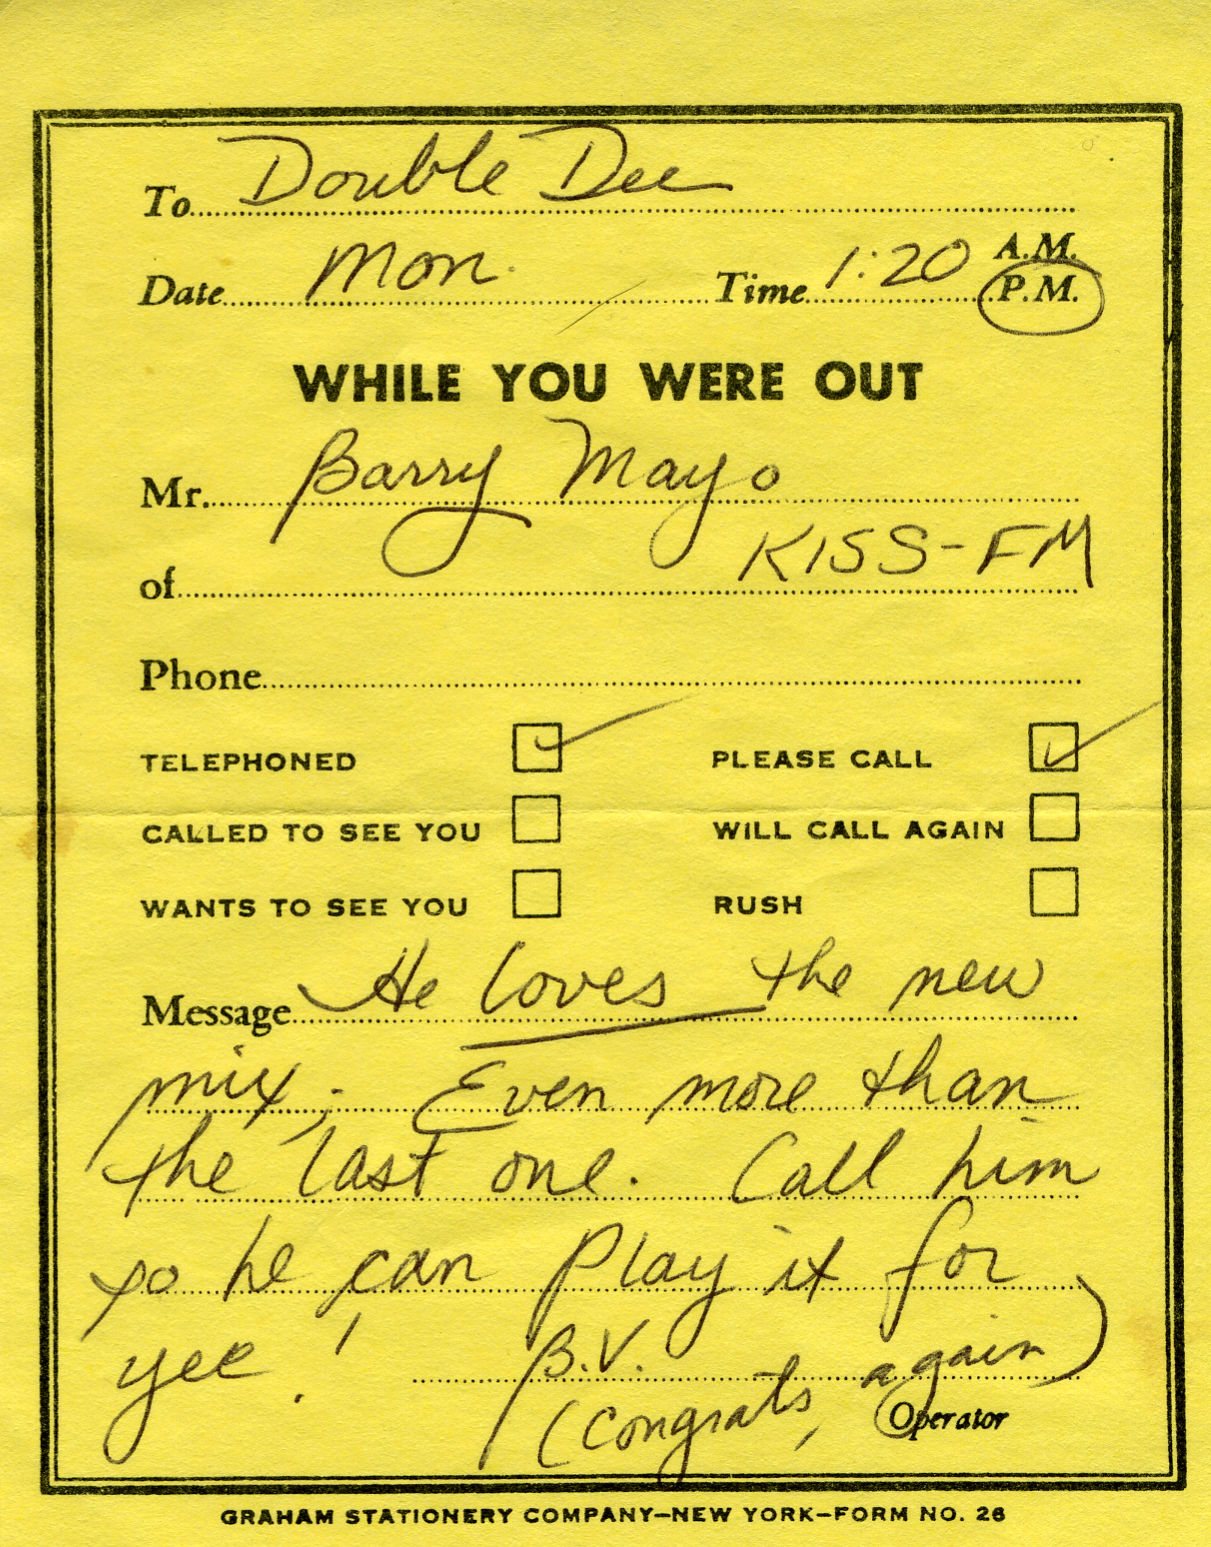 To Double Dee
Date Mon. Time 1:20 A.M.
P.M.
WHILE YOU WERE OUT
Mr. Barry Mayo
of KISS-FM
Phone
TELEPHONED PLEASE CALL
CALLED TO SEE YOU WILL CALL AGAIN
WANTS TO SEE YOU RUSH
Message He loves the new
mix; Even more than
the last one. Call him
so he can play it for
yee!
B.V.
(Congrats, again)
Operator
GRAHAM STATIONERY COMPANY–NEW YORK–FORM NO. 26